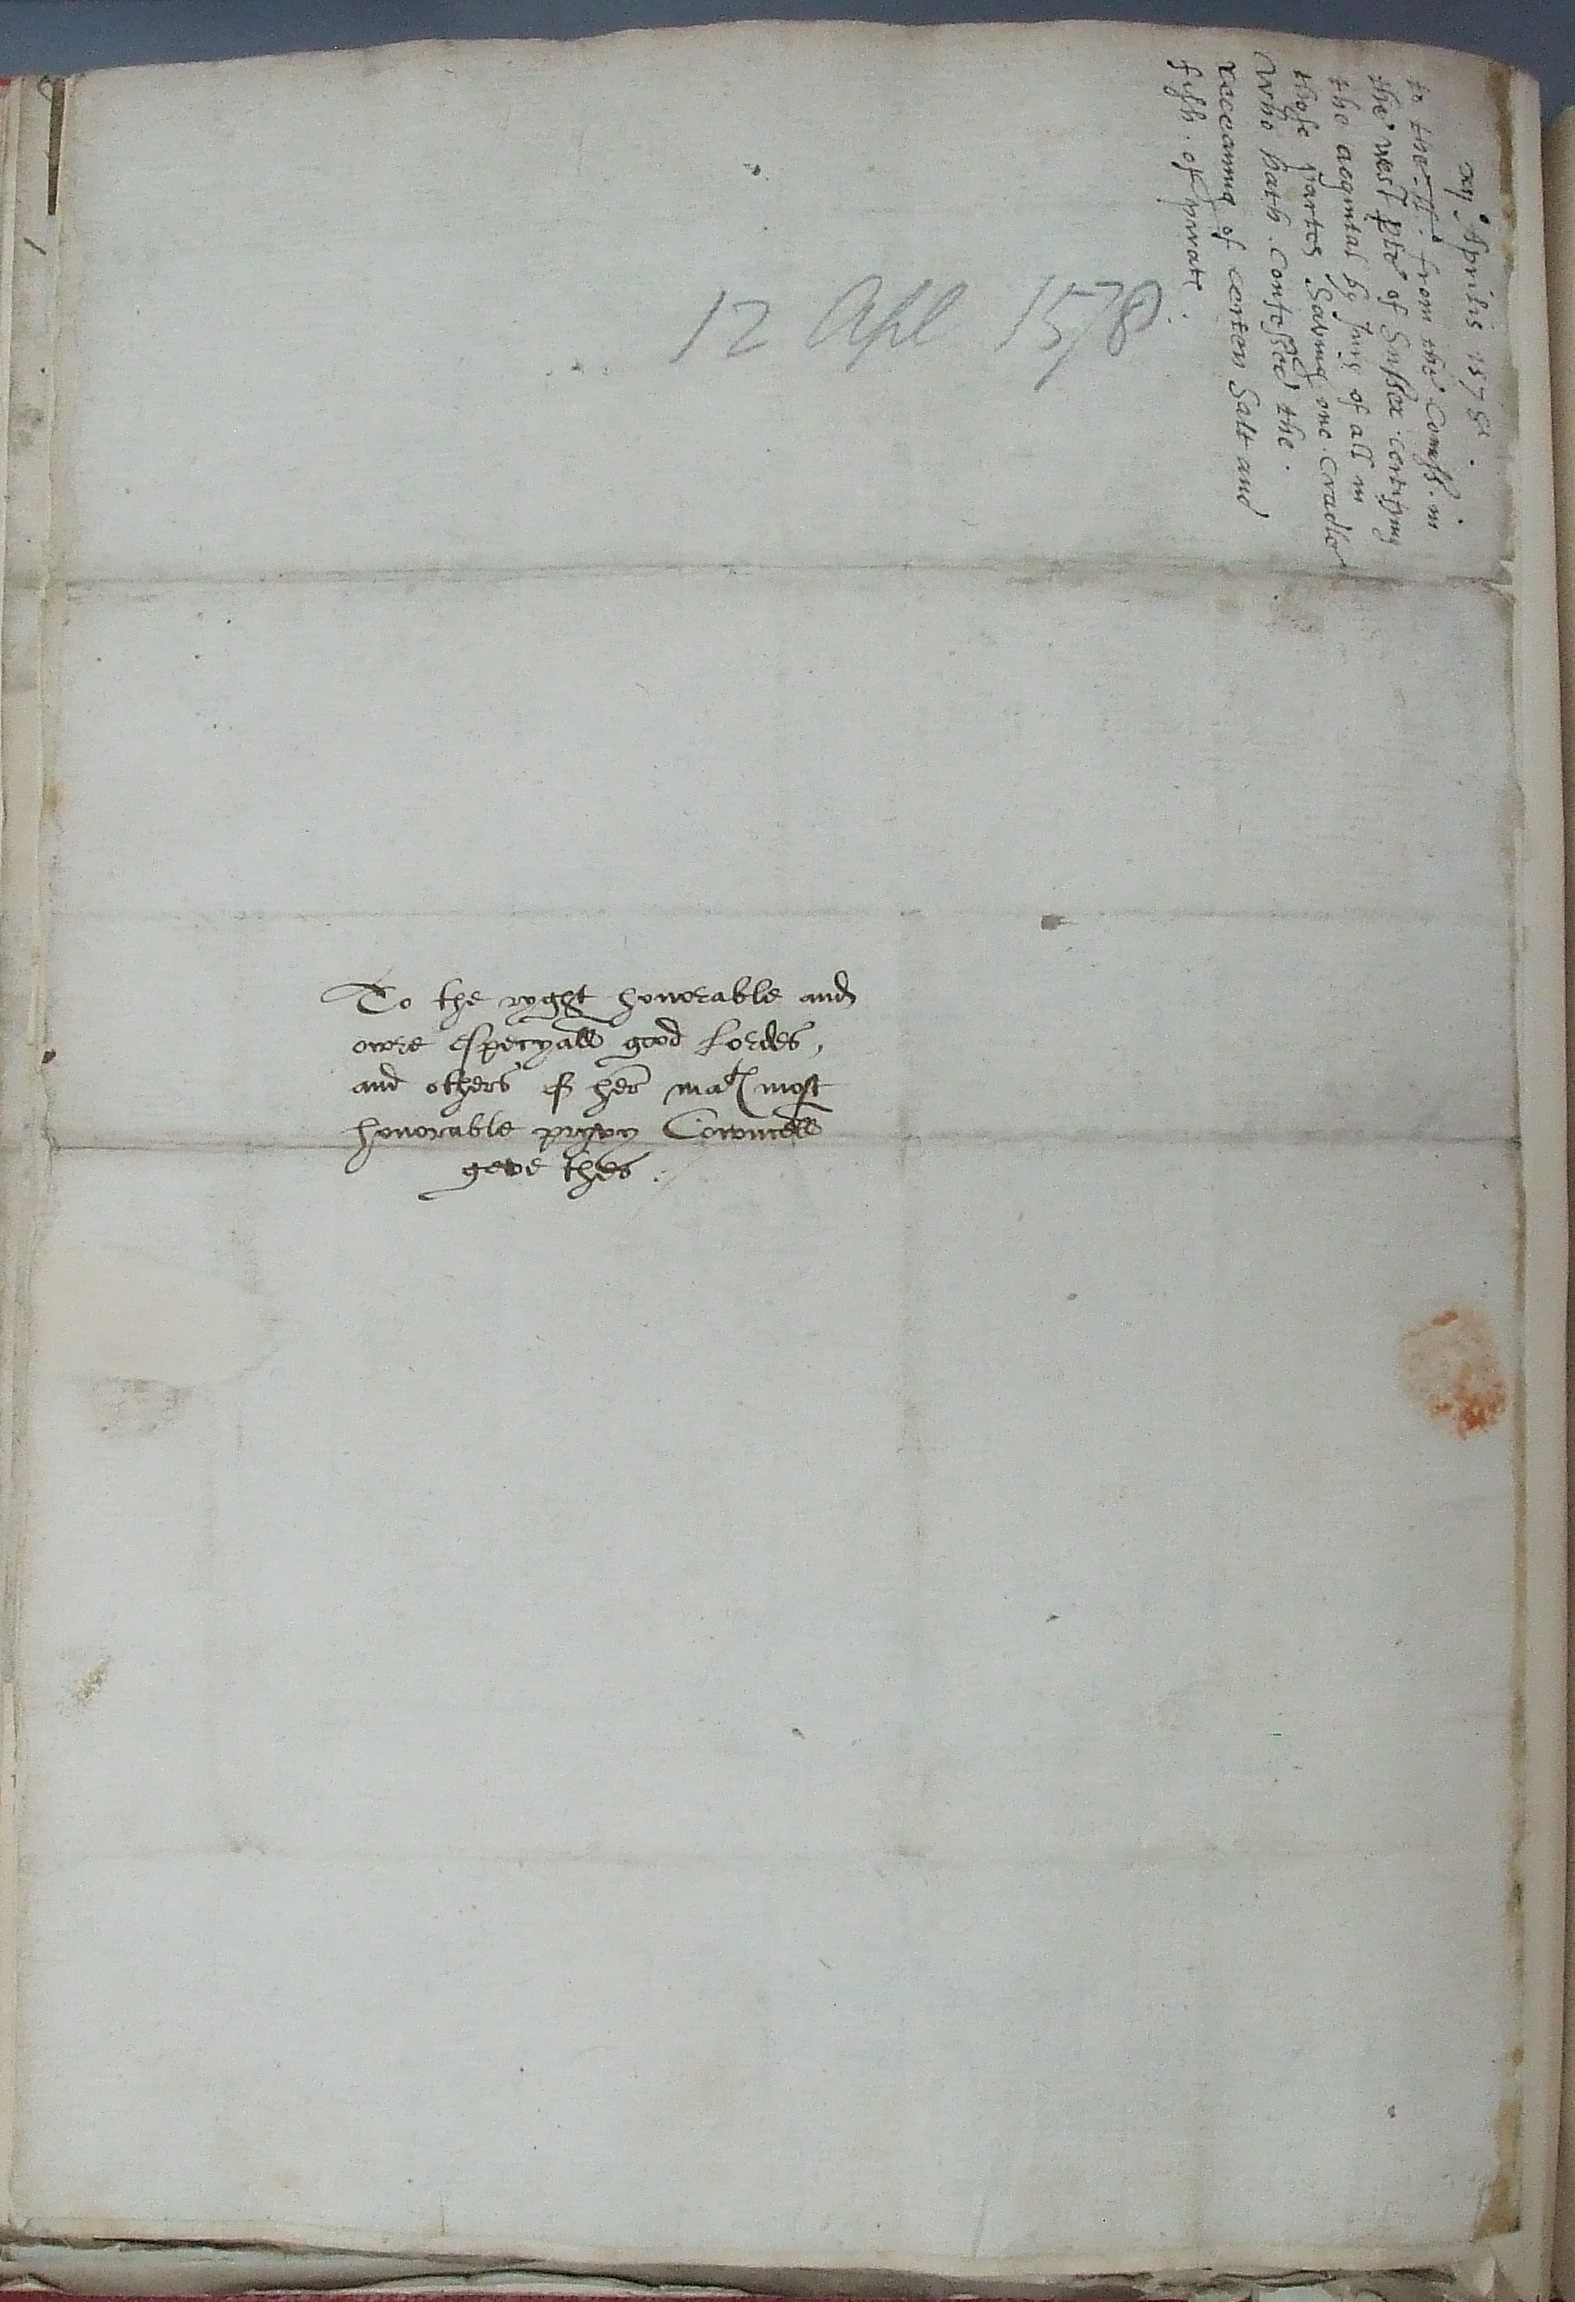 xij° Aprilis 1578.
to the ll. from the Comiss. in
the west pte of Sussex. certifying
the acquital by Jury of all in
those partes saving one. Cradle
who hath. confessed the.
receaving of certen Salt and
fish. of pirats.
12 Apl 1578
To the ryght honorable and
owre especyall good Lordes,
and others of her matis most
honorable pryvy Cowncell
geve thes.